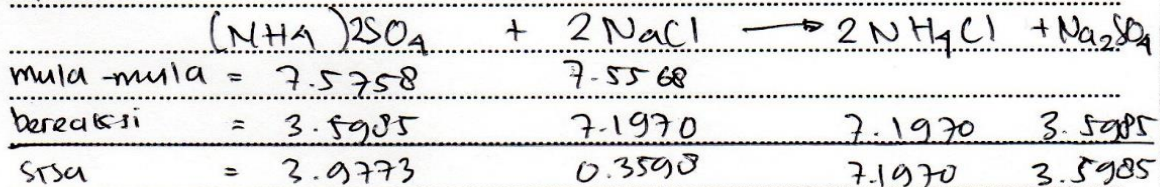 (NH4)2SO4 + 2 NaCl → 2 NH4Cl + Na2SO4
mula-mula = 7.5758 7.5568
bereaksi = 3.5985 7.1970 7.1970 3.5985
sisa = 3.9773 0.3598 7.1970 3.5985